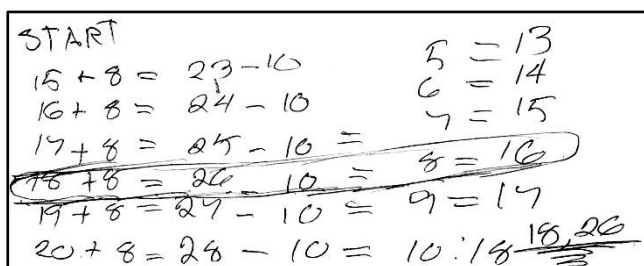 START
15 + 8 = 23 - 10 5 = 13
16 + 8 = 24 - 10 6 = 14
17 + 8 = 25 - 10 = 7 = 15
18 + 8 = 26 - 10 = 8 = 16
19 + 8 = 27 - 10 = 9 = 17
20 + 8 = 28 - 10 = 10 : 18 18, 26